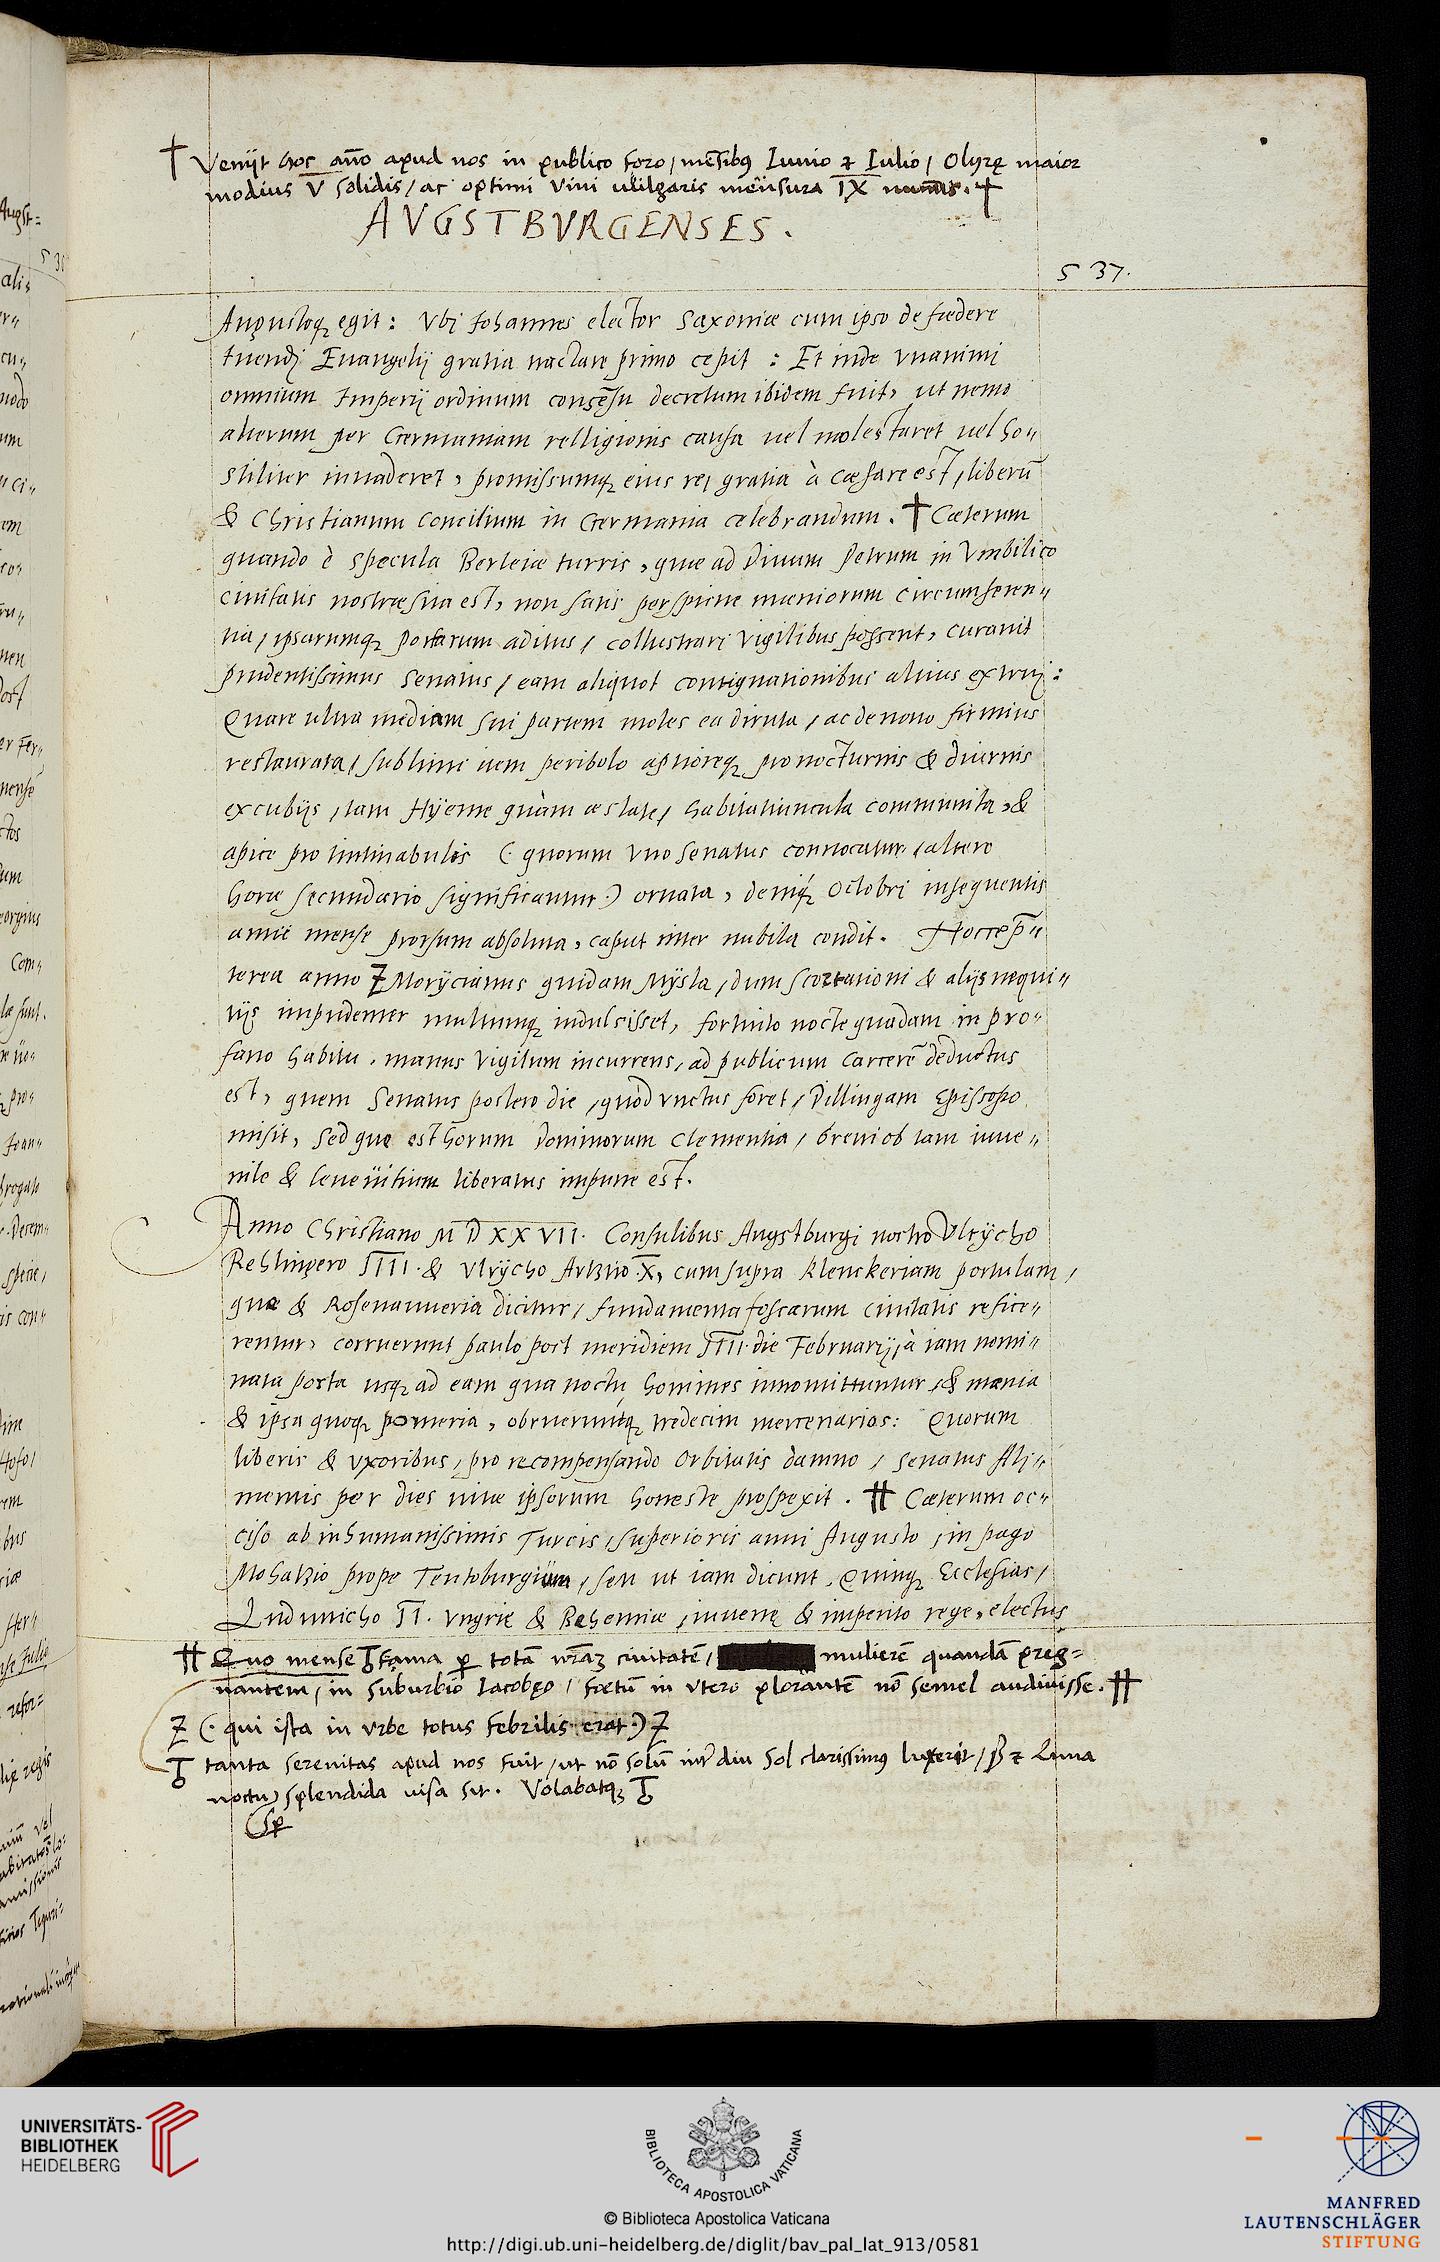 † Venijt hoc año apud nos in publico foro / mēsibꝯ Iunio ⁊ Iulio / Olyrę maior
modius V solidis / ac optimi vini vulgaris mensura IX num̄is. †
AVGSTBVRGENSES.
537.
Augustoqꝫ egit: Vbi Iohannes elector Saxoniæ cum ipso de fœdere
tuendi Euangelij gratia tractare primo cepit: Et inde vnanimi
omnium Imperij ordinum consēsu decretum ibidem fuit, ut nemo
alterum per Germaniam relligionis causa uel molestaret uel ho„
stiliter inuaderet, promissumqꝫ eius rei gratia à Cæsare est, liberū
& Christianum Concilium in Germania celebrandum. † Cæterum
quando è specula Berleiæ turris, quæ ad Diuum Petrum in Vmbilico
ciuitatis nostræ sita est, non satis perspicue mœniorum circumferen„
tia, ipsarumqꝫ portarum aditus, collustrari vigilibus possent, curauit
prudentissimus Senatus, eam aliquot contignationibus altius extrui:
Quare ultra mediam sui partem moles ea diruta, ac de nouo firmius
restaurata, sublimi item peribolo aptioreqꝫ pro nocturnis & diurnis
excubijs, tam Hyeme quàm æstate, habitatiuncula communita, &
apice pro tintinabulis (quorum vno Senatus conuocatur, altero
horæ secundario significantur) ornata, deniqꝫ Octobri insequentis
anni mense prorsum absoluta, caput inter nubila condit. Hocce p̄„
terea anno Ꝣ Morycianus quidam Mysta, dum scortationi & alijs nequi„
tijs impudenter multumqꝫ indulsisset, fortuito nocte quadam in pro„
fano habitu, manus vigilum incurrens, ad publicum carcerē deductus
est, quem Senatus postero die, quòd vnctus foret, Dillingam Episcopo
misit, sed que est horum Dominorum Clementia, breui ob tam iuue„
nile & leue uitium liberatus impune est.
Anno Christiano M D XXVII. Consulibus Augstburgi nostro Vlrycho
Rehlingero IIII. & Vlrycho Artzno X, cum supra Klenckeriam portulam,
quæ & Rosenauueria dicitur, fundamenta fossarum Ciuitatis refice„
rentur, corruerunt paulo post meridiem IIII. die Februarij, à iam nomi„
nata porta usqꝫ ad eam qua noctu homines intromittuntur, & mœnia
& ipsa quoqꝫ pomeria, obruerunt́qꝫ tredecim mercenarios: Quorum
liberis & vxoribus, pro recompensando orbitatis damno, Senatus Ali„
mentis per dies uitæ ipsorum honeste prospexit. ⧺ Cæterum oc„
ciso ab inhumanissimis Turcis, superioris anni Augusto, in pago
Mohatzio prope Teutoburgium, seu ut iam dicunt, Quinqꝫ Ecclesias,
Ludouicho II. Vngrię & Bohemiæ, iuuenę & imperito rege, electus
⧺ Quo mense fama ꝑ totā nr̄aꝫ ciuitatē, mulierē quandā preg=
nantem, in suburbio Iacobęo, fœtū in vtero plorantē nō semel audiuisse. ⧺
Ꝣ (qui ista in vrbe totus febrilis erat) Ꝣ
tanta serenitas apud nos fuit, ut nō solū interdiu Sol clarissimꝯ luxerit, sꝫ ⁊ Luna
noctu splendida uisa sit. Volabatqꝫ
UNIVERSITÄTS-
BIBLIOTHEK
HEIDELBERG
BIBLIOTECA APOSTOLICA VATICANA
© Biblioteca Apostolica Vaticana
http://digi.ub.uni-heidelberg.de/diglit/bav_pal_lat_913/0581
MANFRED
LAUTENSCHLÄGER
STIFTUNG